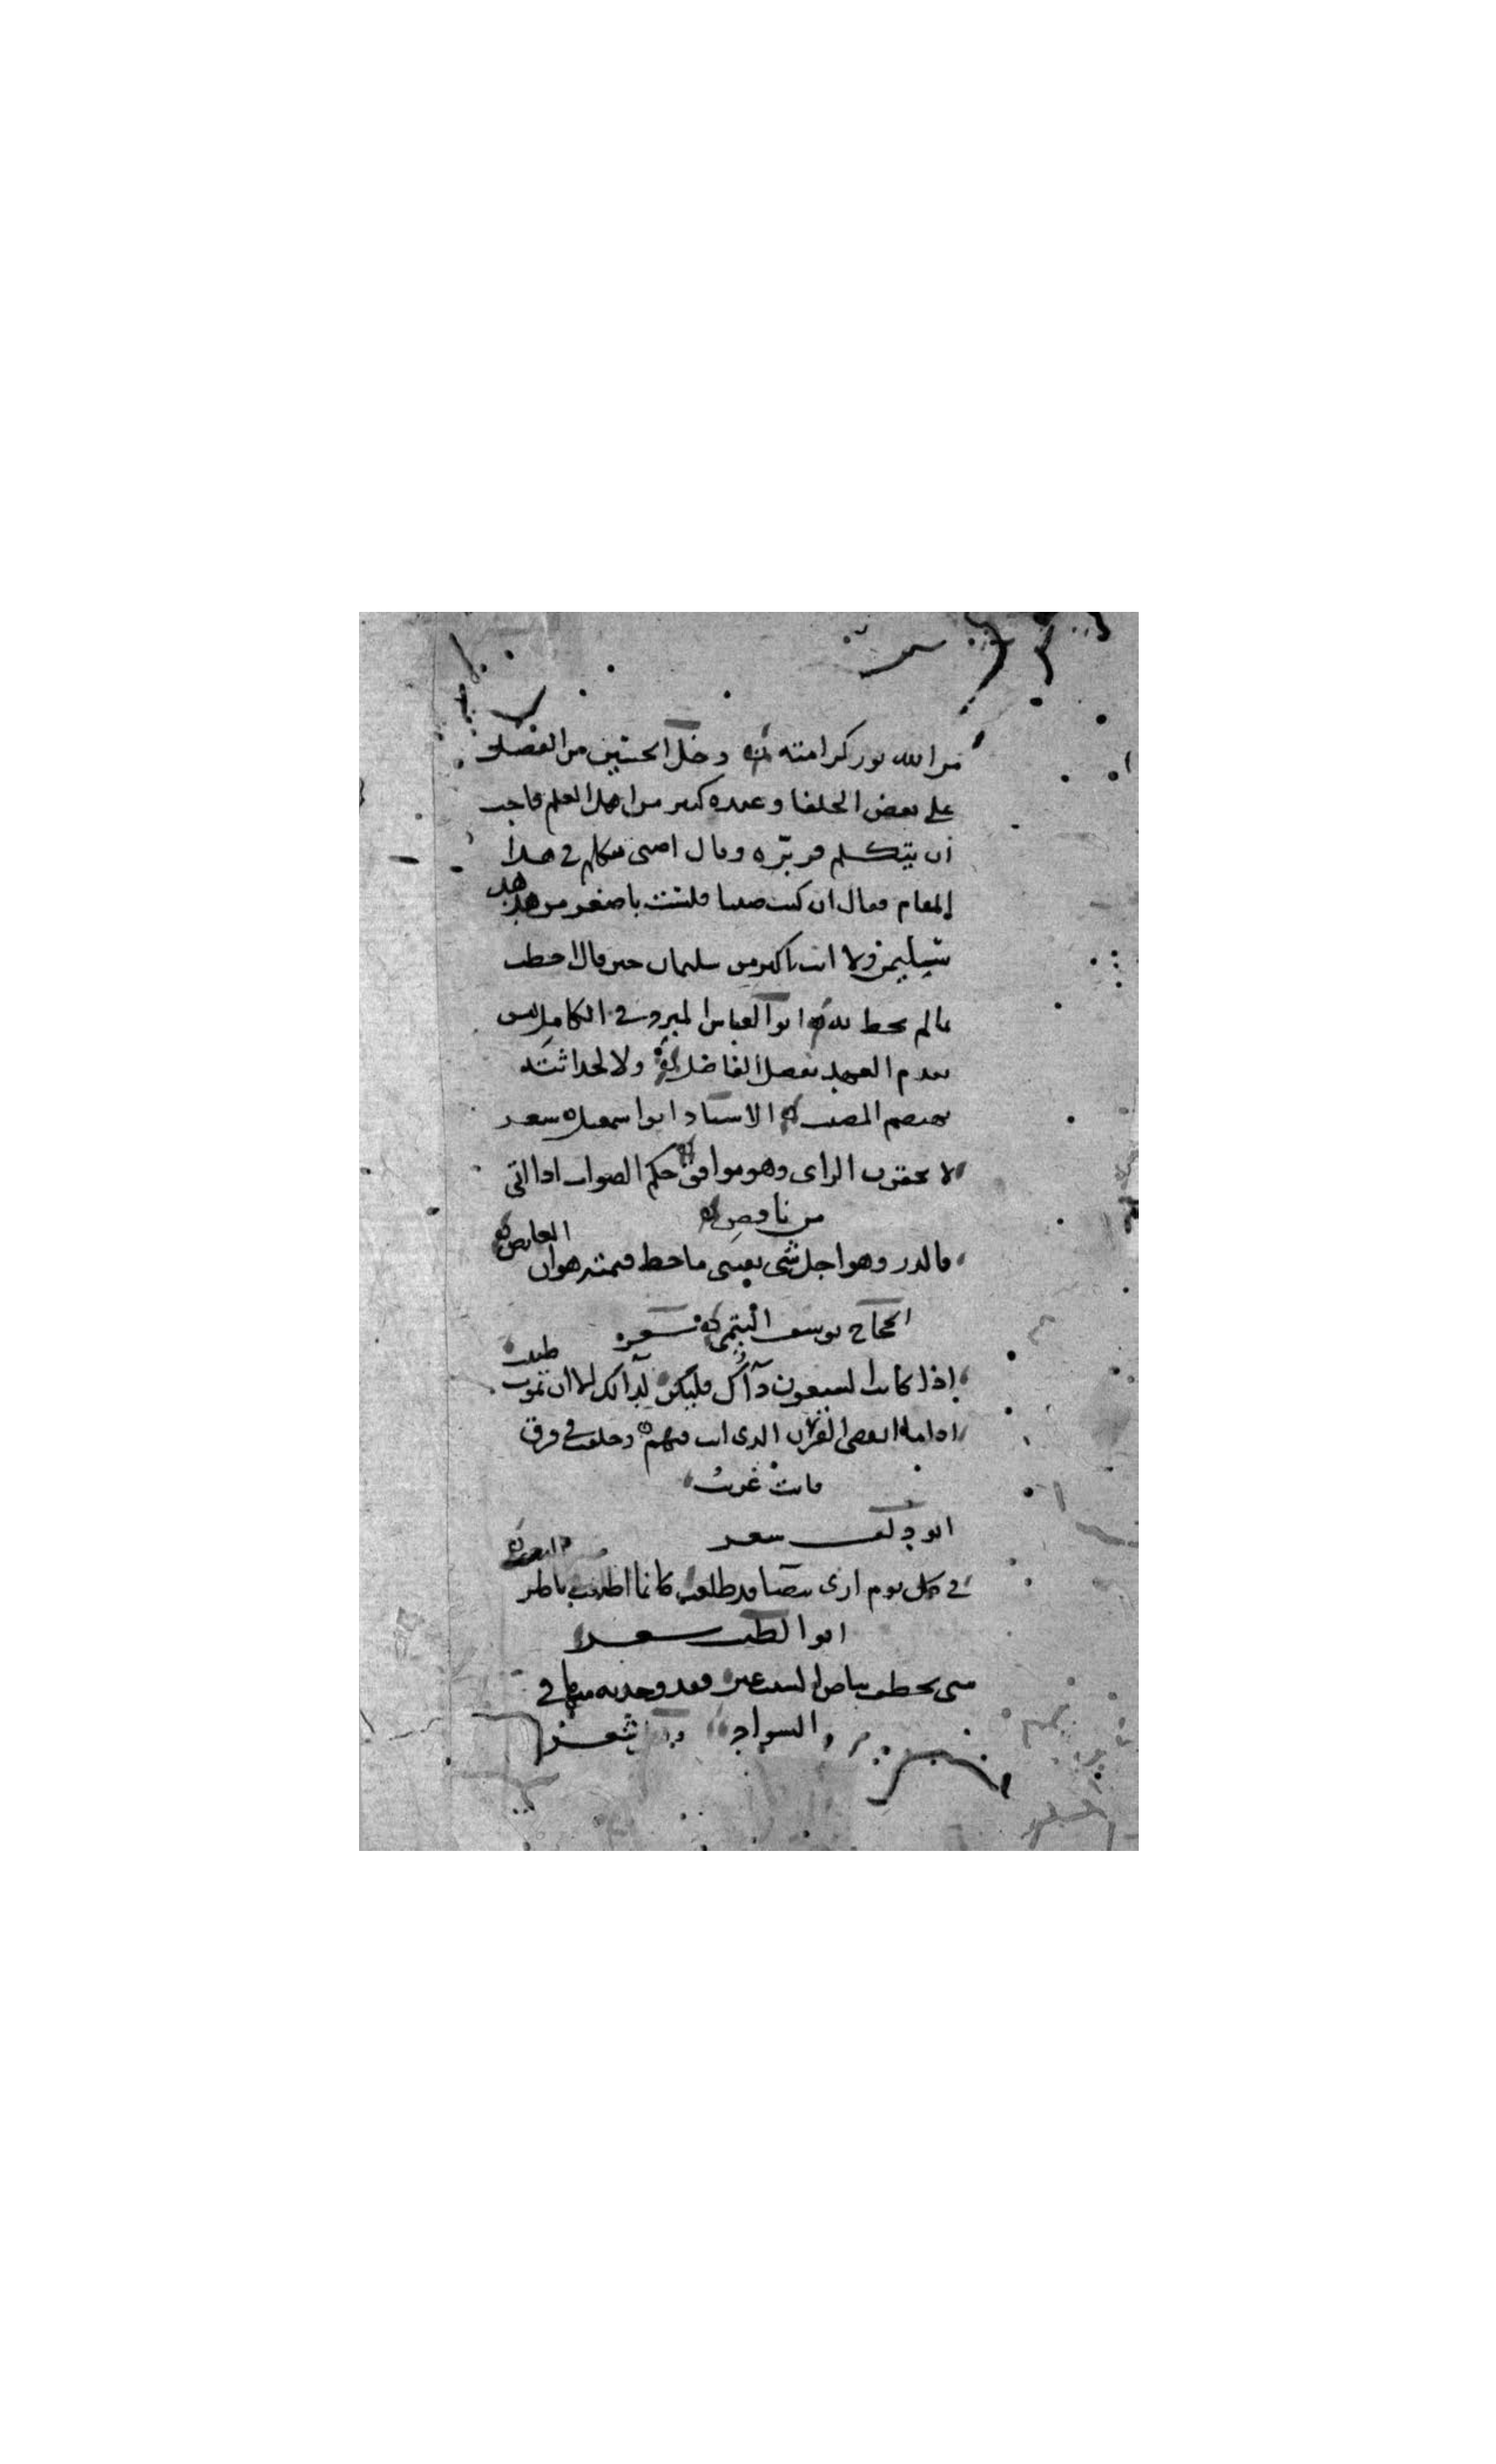 من الله بور كرامته دخل الحسين بن الفضل
على بعض الخلفا وعنده كثير من اهل العلم فاحب
ان يتكلم فزبره وقال اصبى يتكلم في هذا
المقام فقال ان كنت صبيا فلست باصغر من هدهد
سليمن ولا انت باكبر من سليمان حين قال احطت
بما لم تحط به ابو العباس المبرد في الكامل ليس
بقدم العهد يفضل الفاضل ولا لحداثته
يهتضم المصيب الاستاد ابو اسمعيل شعر
لا تحقرن الراى وهو موافق حكم الصواب اذا اتى
من ناقص
فالدر وهو اجل شى يقتنى ما حط قيمته هوان الغايص
الحجاج يوسف التيمى شعر
اذا كانت السبعون داك فليكن لدائك الا ان تموت طبيب
اذا ما انقضى القرن الذى انت فيهم وخلفت في قرن
فانت غريب
ابو دلف شعر
في كل يوم ارى بيضا قد طلعت كانما
ابو الطيب شعر
متى لحظت بياض الشيب عين فقد وجدته منها في
السواد شعر